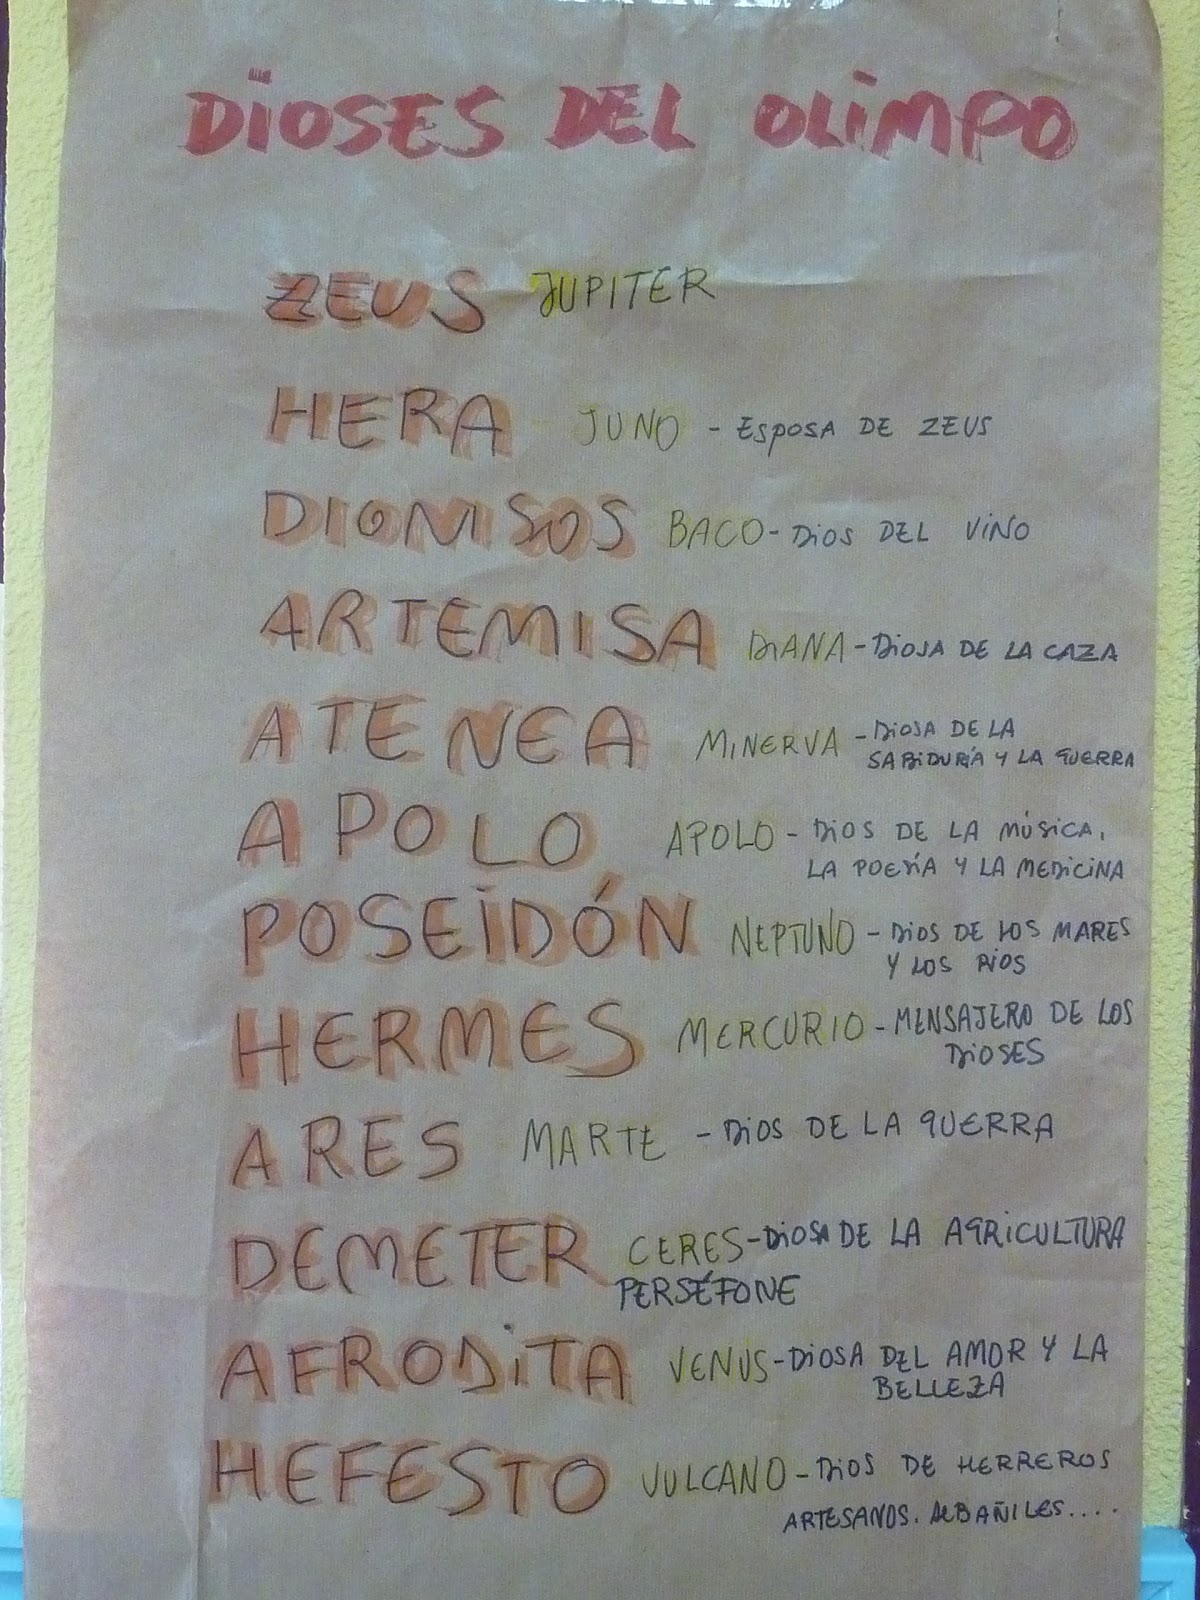 DIOSES DEL OLIMPO
ZEUS JUPITER
HERA JUNO - ESPOSA DE ZEUS
DIONISOS BACO - DIOS DEL VINO
ARTEMISA DIANA - DIOSA DE LA CAZA
ATENEA MINERVA - DIOSA DE LA
SABIDURÍA Y LA GUERRA
APOLO APOLO - DIOS DE LA MÚSICA,
LA POESÍA Y LA MEDICINA
POSEIDÓN NEPTUNO - DIOS DE LOS MARES
Y LOS RIOS
HERMES MERCURIO - MENSAJERO DE LOS
DIOSES
ARES MARTE - DIOS DE LA GUERRA
DEMETER CERES - DIOSA DE LA AGRICULTURA
PERSÉFONE
AFRODITA VENUS - DIOSA DEL AMOR Y LA
BELLEZA
HEFESTO VULCANO - DIOS DE HERREROS
ARTESANOS. ALBAÑILES....